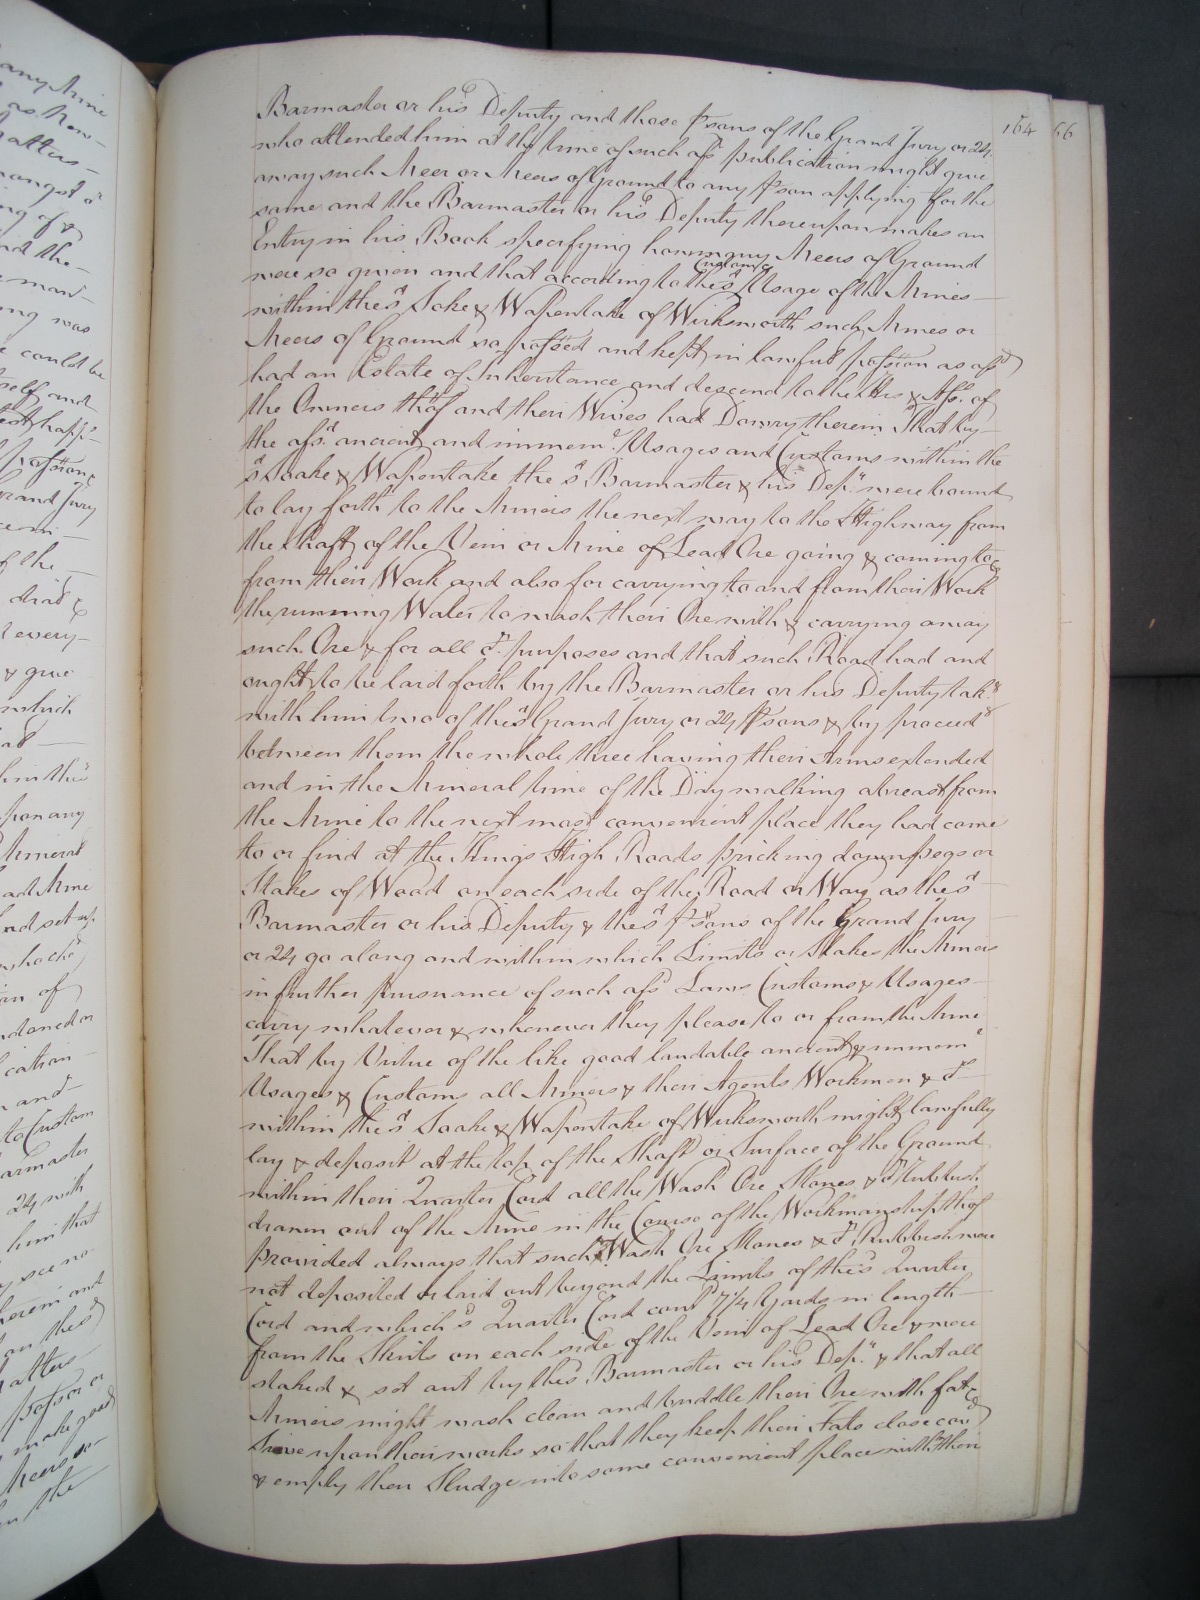 Barmaster or his Deputy and those p'sons of the Grand Jury or 24
164 66
who attended him at the time of such afs'd publication might give
away such Meer or Meers of Ground to any p'son applying for the
same and the Barmaster or his Deputy thereupon makes an
Entry in his Book specifying how many Meers of Ground
were so given and that according to the s'd Custom & Usage of the Mines
within the s'd Soke & Wapentake of Wirksworth such Mines or
Meers of Ground so possed and kept in lawful possion as afs'd
had an Estate of Inheritance and descend to the Hrs & Ass. of
the Owners th'of and their Wives had Dowry therein That by
the afs'd ancient and immem'l Usages and Customs within the
s'd Soake & Wapentake the s'd Barmaster & his Dep'y were bound
to lay forth to the Miners the next way to the Highway from
the Shaft of the Vein or Mine of Lead Ore going & coming to &
from their Work and also for carrying to and from their Work
the running Water to wash their Ore with & carrying away
such Ore & for all o'r purposes and that such Road had and
ought to be laid forth by the Barmaster or his Deputy tak'g
with him two of the s'd Grand Jury or 24 p'sons & by proceed'g
between them the whole three having their Arms extended
and in the Mineral time of the Day walking abreast from
the Mine to the next most convenient place they had come
to or find at the Kings High Roads pricking down pegs or
Stakes of Wood on each side of the Road or Way as the s'd
Barmaster or his Deputy & the s'd p'sons of the Grand Jury
or 24 go along and within which Limits or Stakes the Miners
in further pursuance of such afs'd Laws Customs & Usages
carry whatever & whenever they please to or from the Mine
That by Virtue of the like good laudable ancient & immem'l
Usages & Customs all Miners & their Agents Workmen & o'rs
within the s'd Soake & Wapentake of Wirksworth might lawfully
lay & deposit at the top of the Shaft or Surface of the Ground
within their Quarter Cord all the Wash Ore Stones & o'r Rubbish
drawn out of the Mine in the Course of the Workmanship th'of
provided always that such Wash Ore Stones & o'r Rubbish were
not deposited or laid out beyond the Limits of the s'd Quarter
Cord and which s'd Quarter Cord cont'd 7¼ Yards in length
from the Skirts on each side of the Vein of Lead Ore & were
staked & set out by the s'd Barmaster or his Dep'y & that all
Miners might wash clean and buddle their Ore with fat &
Sieve upon their works so that they keep their Fats close cov'd
& empty their Sludge into some convenient place within their